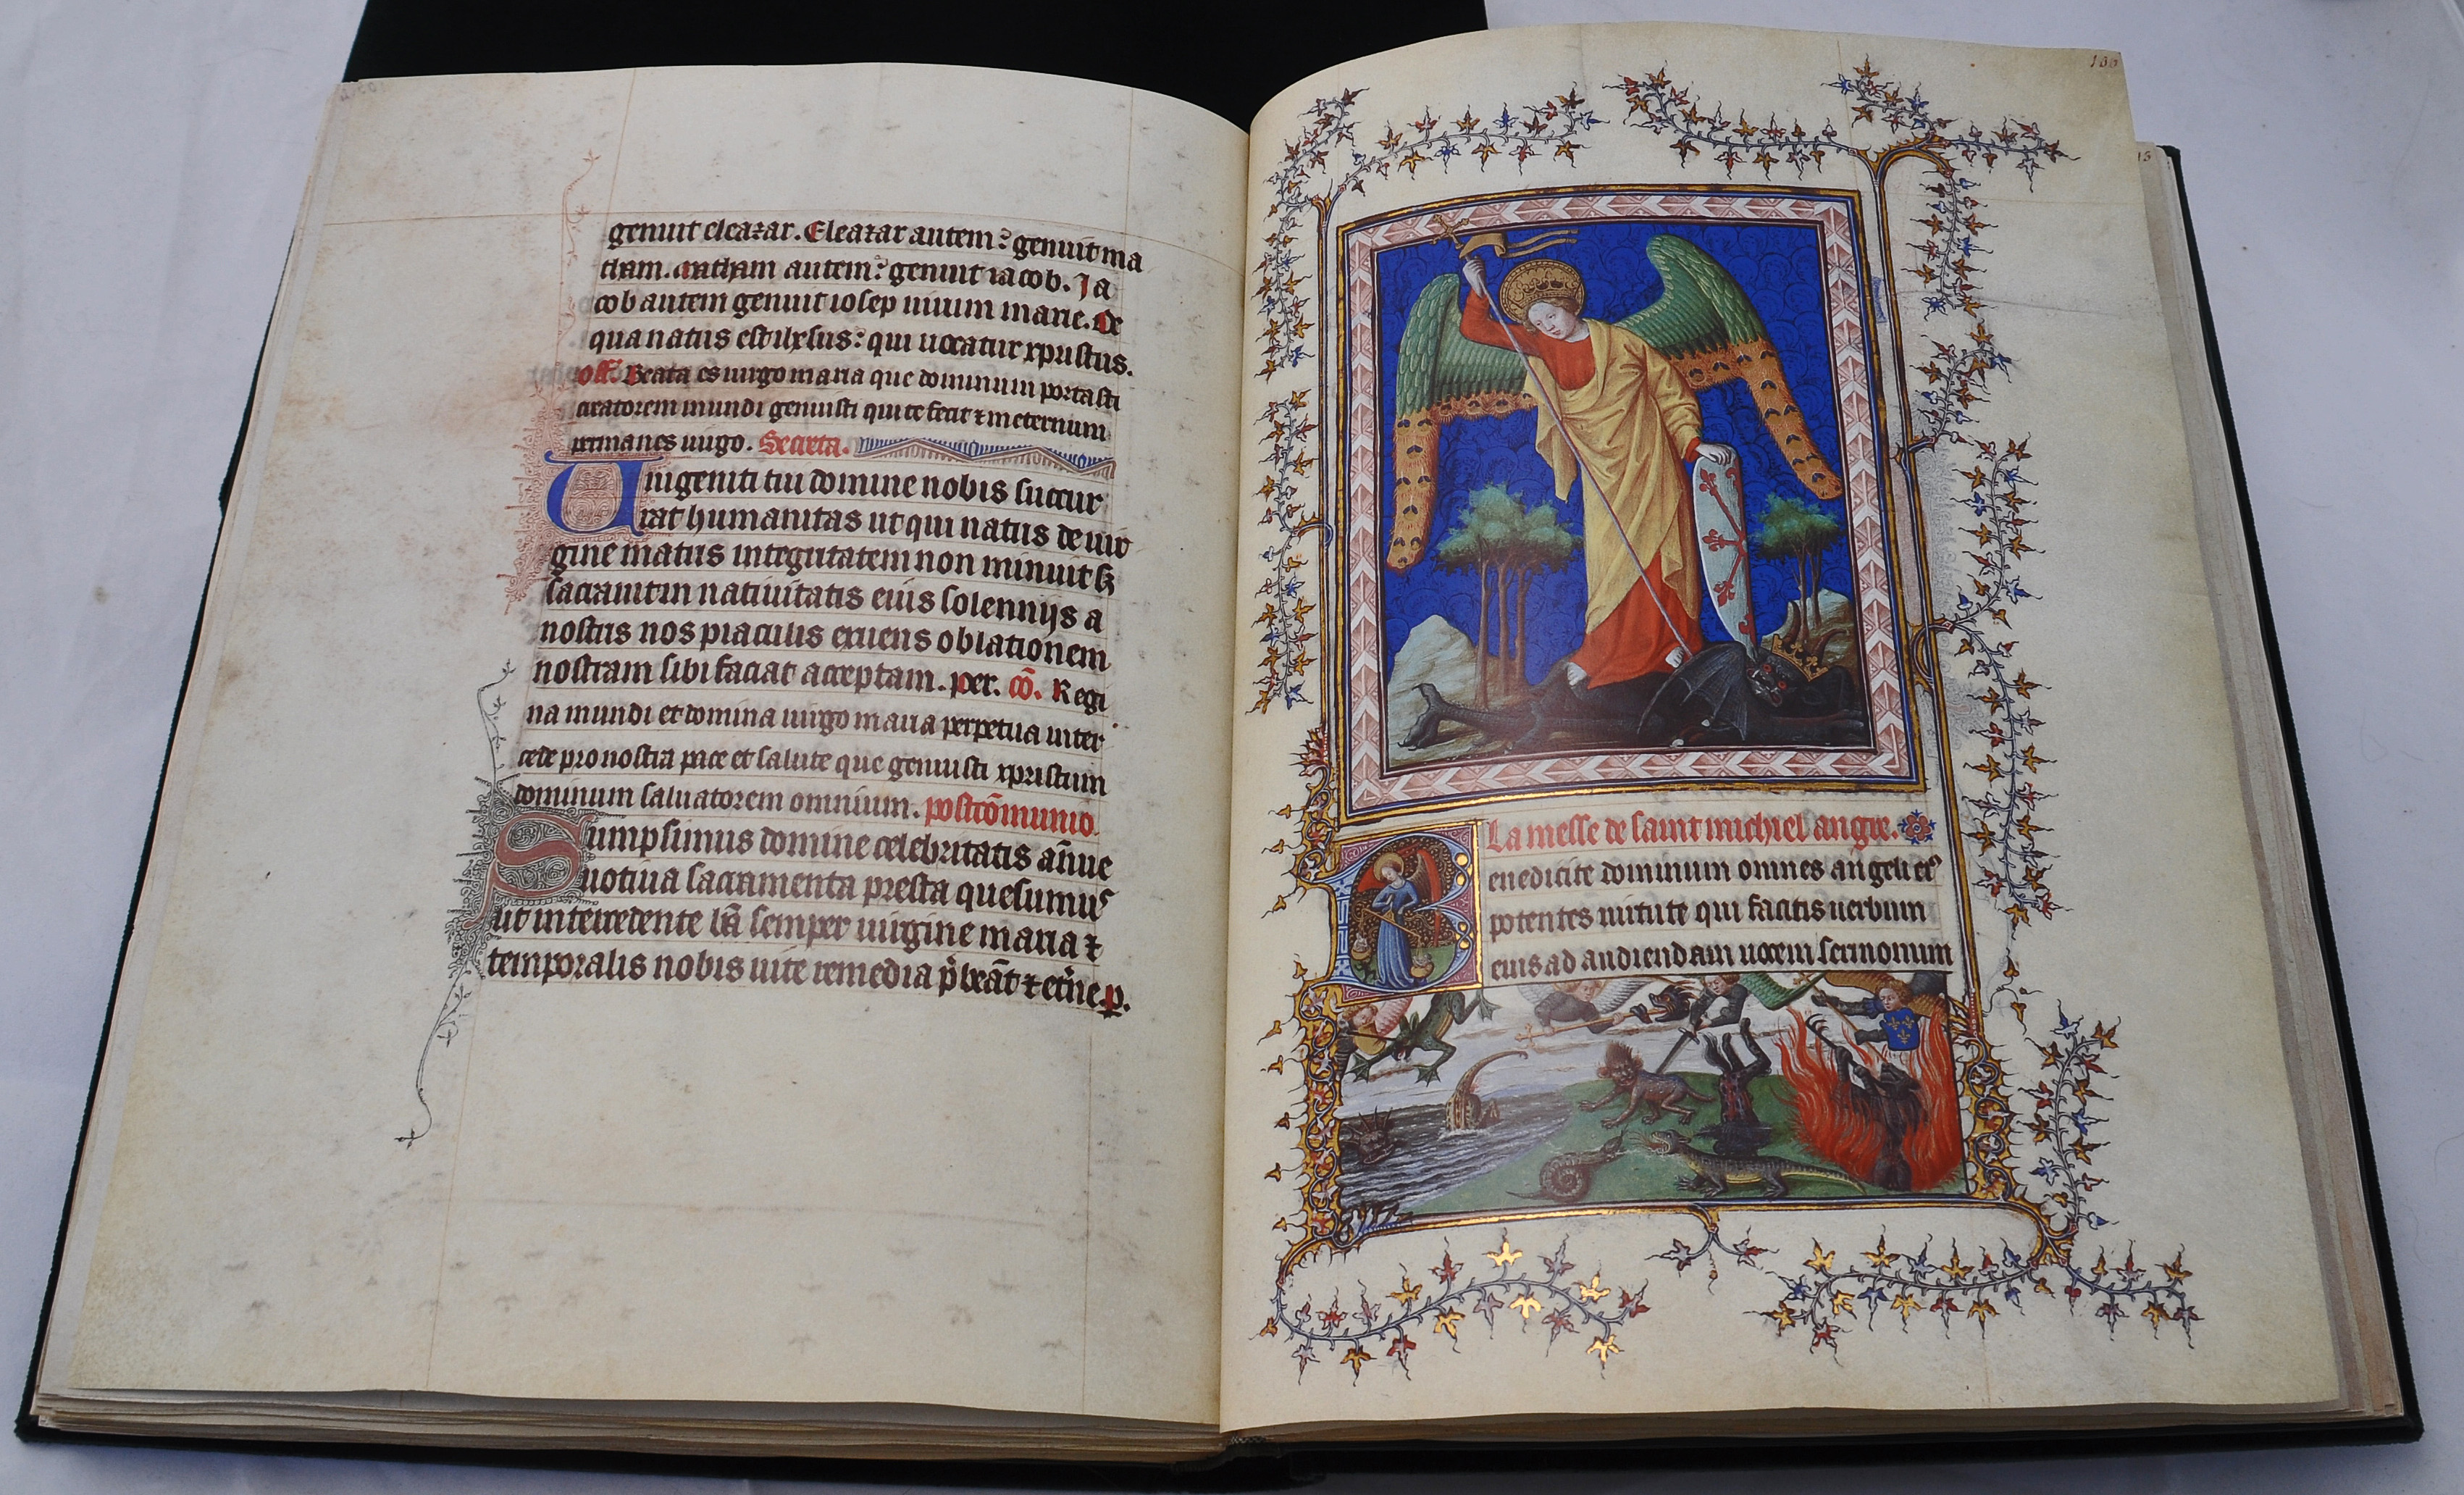 genuit eleazar. Eleazar autem: genuit ma
tham. matham autem: genuit iacob. Ja
cob autem genuit iosep uirum marie. de
qua natus est ihesus: qui uocatur xpistus.
off. Beata es uirgo maria que dominum portasti
creatorem mundi genuisti qui te fecit ⁊ in eternum
permanes uirgo. Secreta.
Unigeniti tui domine nobis succur
rat humanitas ut qui natus de uir
gine matris integritatem non minuit sꝫ
sacrauit in natiuitatis eius solennijs a
nostris nos piaculis exuens oblationem
nostram sibi faciat acceptam. per. cō. Regi
na mundi et domina uirgo maria perpetua inter
cede pro nostra pace et salute que genuisti xpristum
dominum saluatorem omnium. postcōmunio.
Sumpsimus domine celebritatis ānue
uotiua sacramenta presta quesumus
ut intercedente bā semper uirgine maria ⁊
temporalis nobis uite remedia p̄beāt ⁊ et̄ne p.
100
La messe de saint michiel angre.
Benedicite dominum omnes angeli eiꝰ
potentes uirtute qui facitis uerbum
eius ad audiendam uocem sermonum